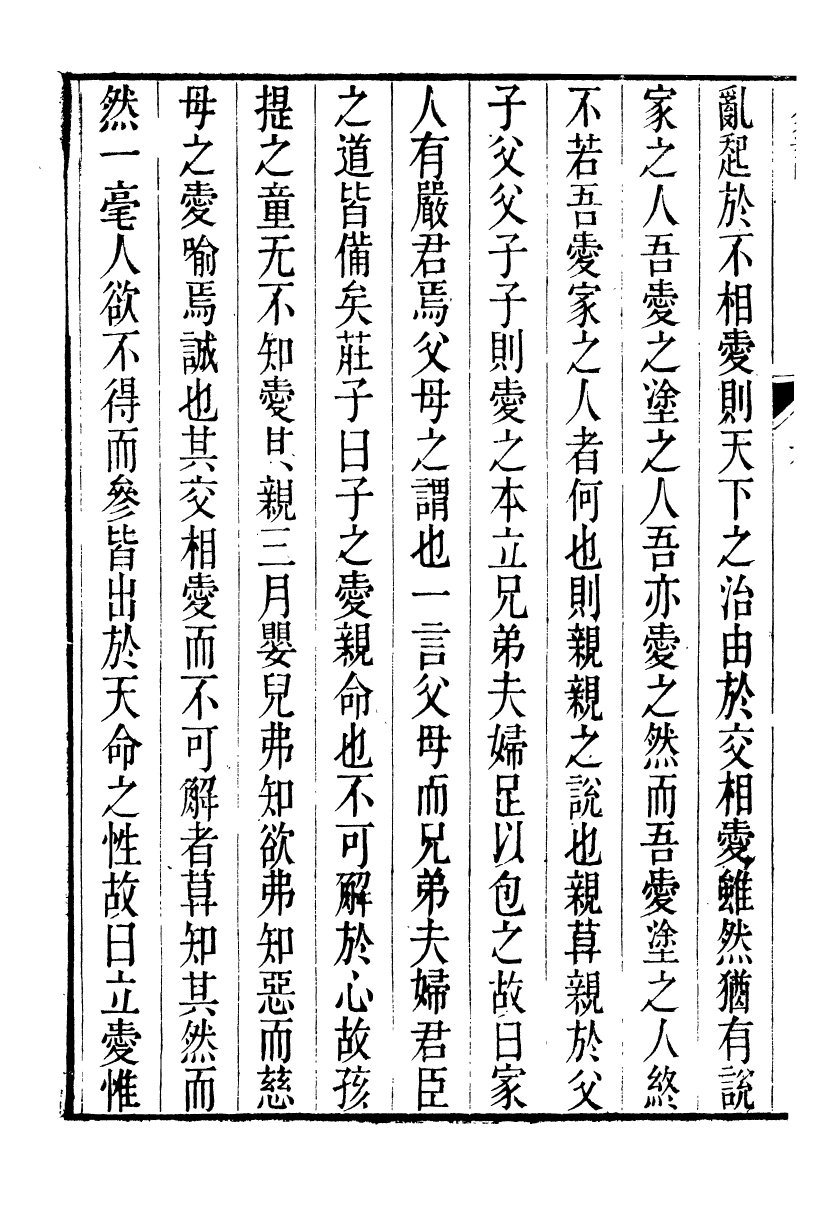 亂起於不相愛則天下之治由於交相愛雖然猶有說
家之人吾愛之塗之人吾亦愛之然而吾愛塗之人終
不若吾愛家之人者何也則親親之說也親莫親於父
子父父子子則愛之本立兄弟夫婦足以包之故曰家
人有嚴君焉父母之謂也一言父母而兄弟夫婦君臣
之道皆備矣莊子曰子之愛親命也不可解於心故孩
提之童无不知愛其親三月嬰兒弗知欲弗知惡而慈
母之愛喻焉誠也其交相愛而不可解者莫知其然而
然一毫人欲不得而參皆出於天命之性故曰立愛惟